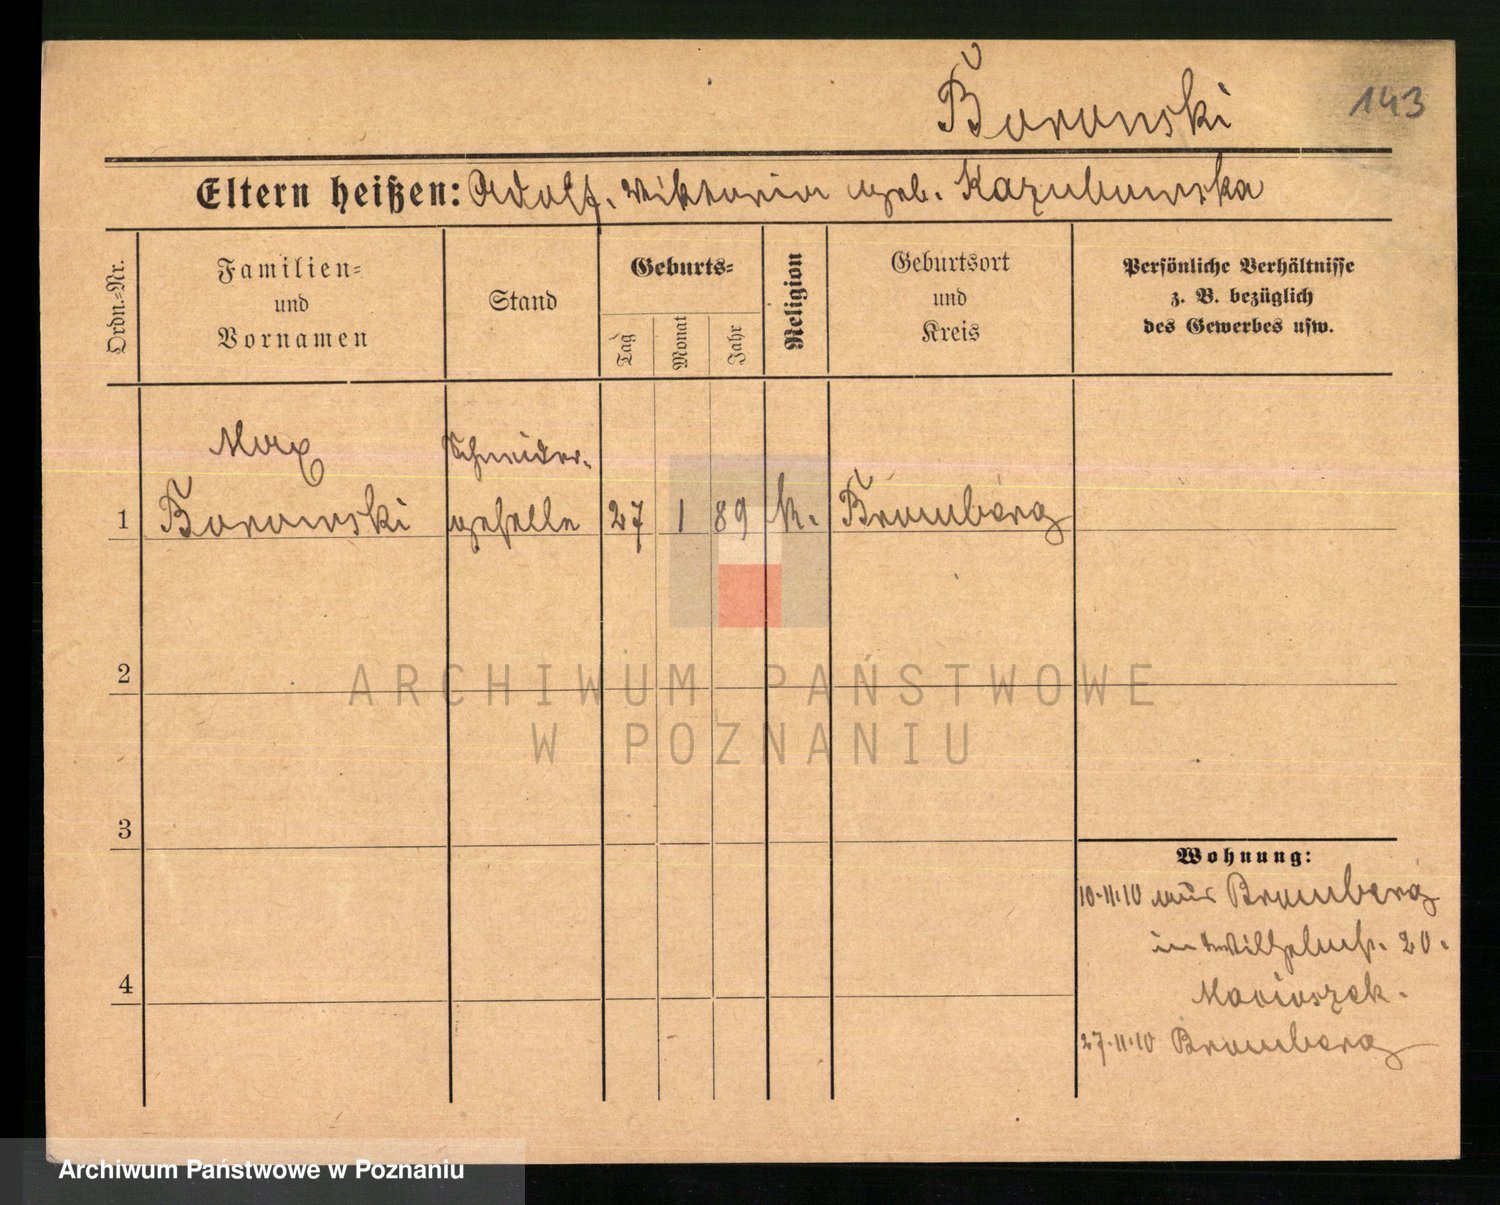 Borowski
143
Eltern heißen: Adolf. Viktoria geb. Kazubowska
Ordn.-Nr.
Familien-
und
Vornamen
Stand
Geburts-
Tag
Monat
Jahr
Religion
Geburtsort
und
Kreis
Persönliche Verhältnisse
z. B. bezüglich
des Gewerbes usw.
Max Schneider-
1 Borowski geselle 27 1 89 k. Bromberg
2
3
4
Wohnung:
10.11.10 aus Bromberg
in Wilhelmstr. 20.
27.11.10 Bromberg
ARCHIWUM PAŃSTWOWE
W POZNANIU
Archiwum Państwowe w Poznaniu